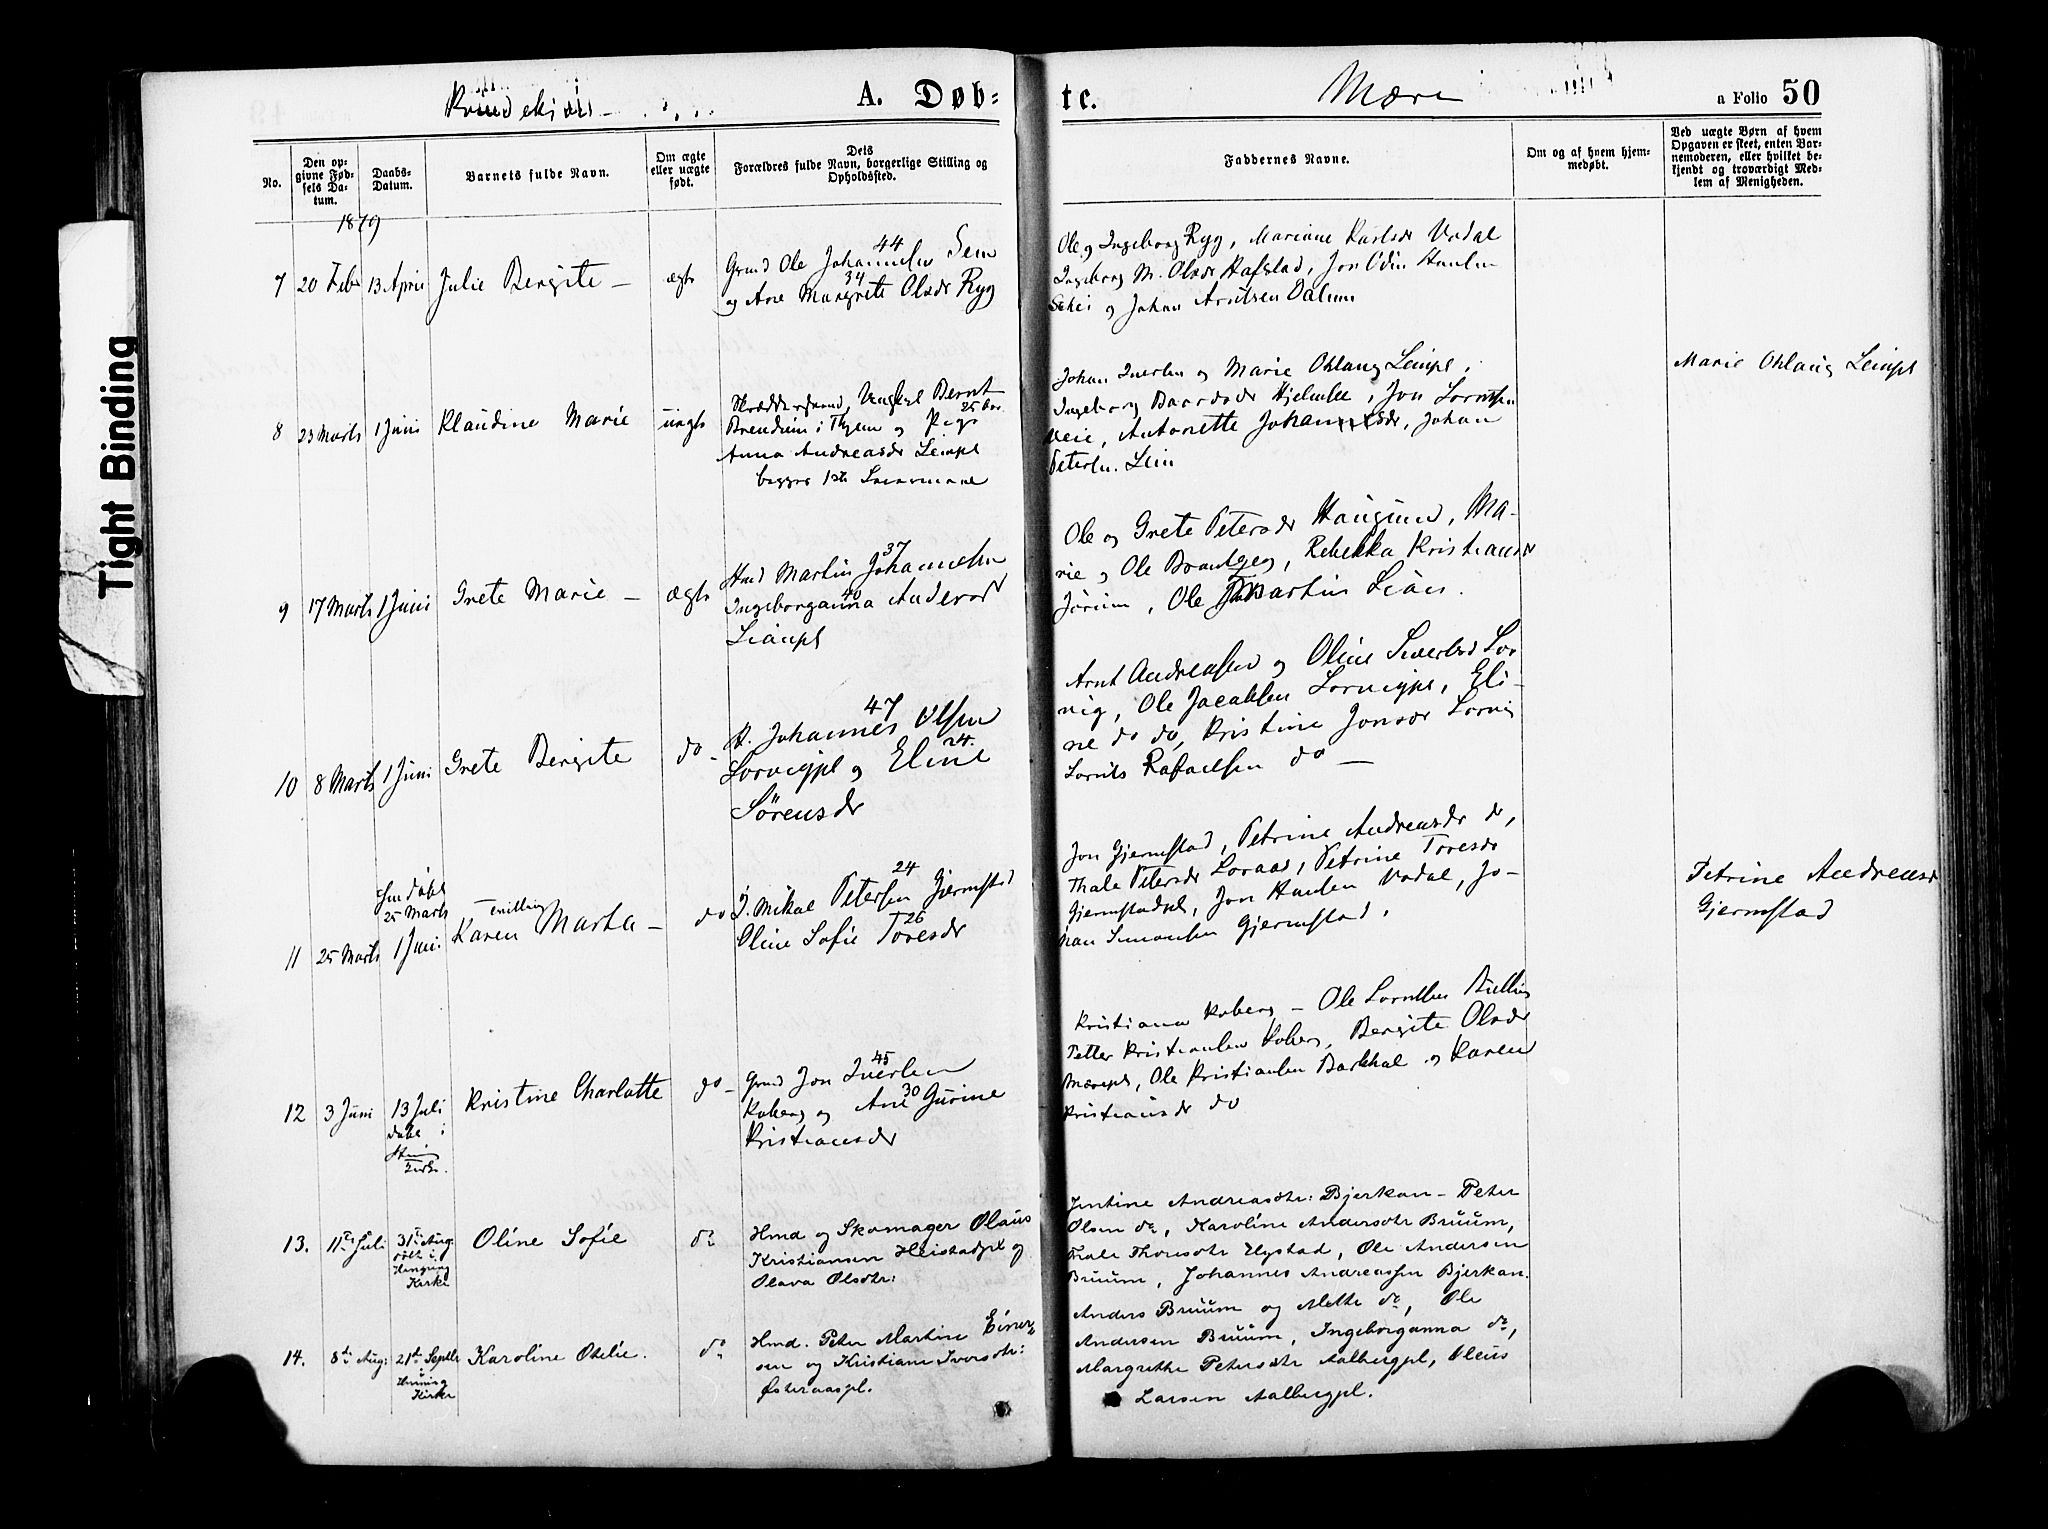 Kvindekjøn
A. Døb=
te.
Mære
a Folio 50
No.
Den op-
givne Fød-
sels Da-
tum.
Daabs-
Datum.
Barnets fulde Navn.
Om ægte
eller uægte
født.
Dets
Forældres fulde Navn, borgerlige Stilling og
Opholdssted.
Faddernes Navne.
Om og af hvem hjem-
medøbt.
Ved uægte Børn af hvem
Opgaven er skeet, enten Bar-
nemoderen, eller hvilket be-
kjendt og troværdigt Med-
lem af Menigheden.
1879
7 20 Febr 13 April Julie Bergite — ægte
44
Grmd Ole Johannesen Sem
34
og Ane Margrete Olsdr Ryg
Ole og Ingeborg Ryg, Mariane Karlsdr Vådal
Ingeborg M. Olsdr Hafstad, Jon Odin Hansen
og Johan Arntsen Dalum
8 23 Marts 1 Juni Klaudine Marie uægte
Ungkarl Bernt
25
i og Pige
Anna Andreasdr Leinpl
begges 1ste Leiermaal
Johan Iversen og Marie Leinpl,
Ingeborg Baardsdr, Jon Lorntsen
Veie, Antonette Johannesdr, Johan
Petersen Lein
Marie Leinpl
9 17 Marts 1 Juni Grete Marie — ægte
37
Hmd Martin Johannesen
40
Ingeborganna Andersdr
Liaanpl
Ole og Grete Petersdr Haugum, Ma-
rie og Ole, Rebekka Kristiansdr
Jørum, Ole Martin Liaan.
10 8 Marts 1 Juni Grete Bergite do -
47
Johannes Olsen
24.
Lorvigpl og Eline
Sørensdr
Arnt Andreassen og Oline Sivertsdr Lor
vig, Ole Jacobsen Lorvigpl, Eli-
ne do do, Kristine Jonsdr Lorvig
Lornts Rafaelsen do —
11 25 Marts
25 Marts
1 Juni.
Tvilling
Karen Marta — do
24
I. Mikal Petersen Gjermstad
26
Oline Sofie Toresdr
Jon Gjermstad, Petrine Andreasdr do,
Thale Petersdr Loraas, Petrine Toresdr
Gjermstadpl, Jon Hansen Vådal, Jo-
han Simonsen Gjermstad.
Petrine Andreasdr
Gjermstad
12 3 Juni 13 Juli
døbt i
Kirke.
Kristine Charlotte do -
45
Grmd Jon Iversen
30
Koberg og Ane Gurine
Kristiansdr
Kristiana Koberg — Ole Lorntsen
Petter Kristiansen Koberg, Bergite Olsdr
Mærepl, Ole Kristiansen Barkhal og Karen
Kristiansdr do
13. 11te Juli 31te Aug.
døbt i
Henning
Kirke
Oline Sofie do
Hmd og Skomager Olaus
Kristiansen Heistadpl og
Olava Olsdtr:
Jentine Andreasdtr: Bjerkan — Peter
Olsen do, Karoline Andersdtr Bruum,
Thale Thoresdtr Hystad, Ole Andersen
Bruum, Johannes Andreassen Bjerkan.
14. 8de Aug: 21de Septbr
i
Henning
Kirke
Karoline Otelie. do
Hmd. Peter Martin Einer-
sen og Kristiane Iversdtr:
Østeraaspl.
Anders Bruum og Mette do, Ole
Andersen Bruum, Ingeborganna do,
Margrethe Petersdtr Aalbergpl, Oleus
Larsen Aalbergpl.
Tight Binding